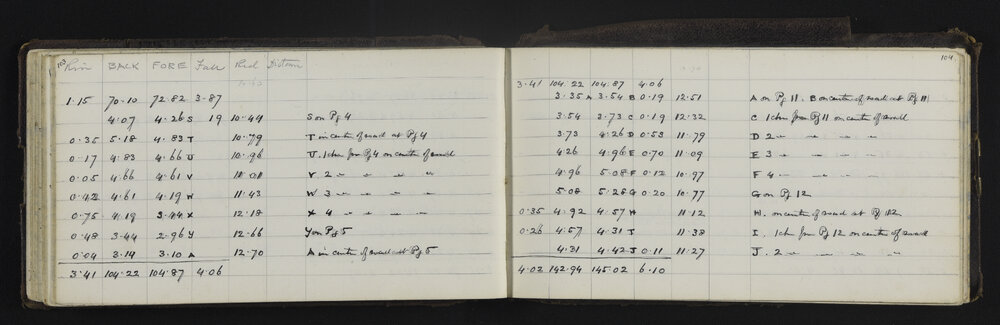 103
Rise BACK FORE Fall Red Distance
1.15 70.10 72.82 3.87
4.07 4.26 S 19 10.44 S on Pg 4
0.35 5.18 4.83 T 10.79 T in centre of road at Pg 4
0.17 4.83 4.66 U 10.96 U. 1chn from Pg 4 on centre of road
0.05 4.66 4.61 V 11.01 V 2 " " " "
0.42 4.61 4.19 W 11.43 W 3 " " " "
0.75 4.19 3.44 X 12.18 X 4 " " " "
0.48 3.44 2.96 Y 12.66 Y on Pg 5
0.04 3.14 3.10 A 12.70 A in centre of road at Pg 5
3.41 104.22 104.87 4.06
104
3.41 104.22 104.87 4.06
3.35 A 3.54 B 0.19 12.51 A on Pg 11. B on centre of road at Pg 11
3.54 3.73 C 0.19 12.32 C 1chn from Pg 11 on centre of road
3.73 4.26 D 0.53 11.79 D 2 " " " "
4.26 4.96 E 0.70 11.09 E 3 " " " "
4.96 5.08 F 0.12 10.97 F 4 " " " "
5.08 5.28 G 0.20 10.77 G on Pg 12
0.35 4.92 4.57 H 11.12 on centre of road at Pg 12
0.26 4.57 4.31 I 11.38 I. 1chn from Pg 12 on centre of road
4.31 4.42 J 0.11 11.27 J. 2 " " " "
4.02 142.94 145.02 6.10